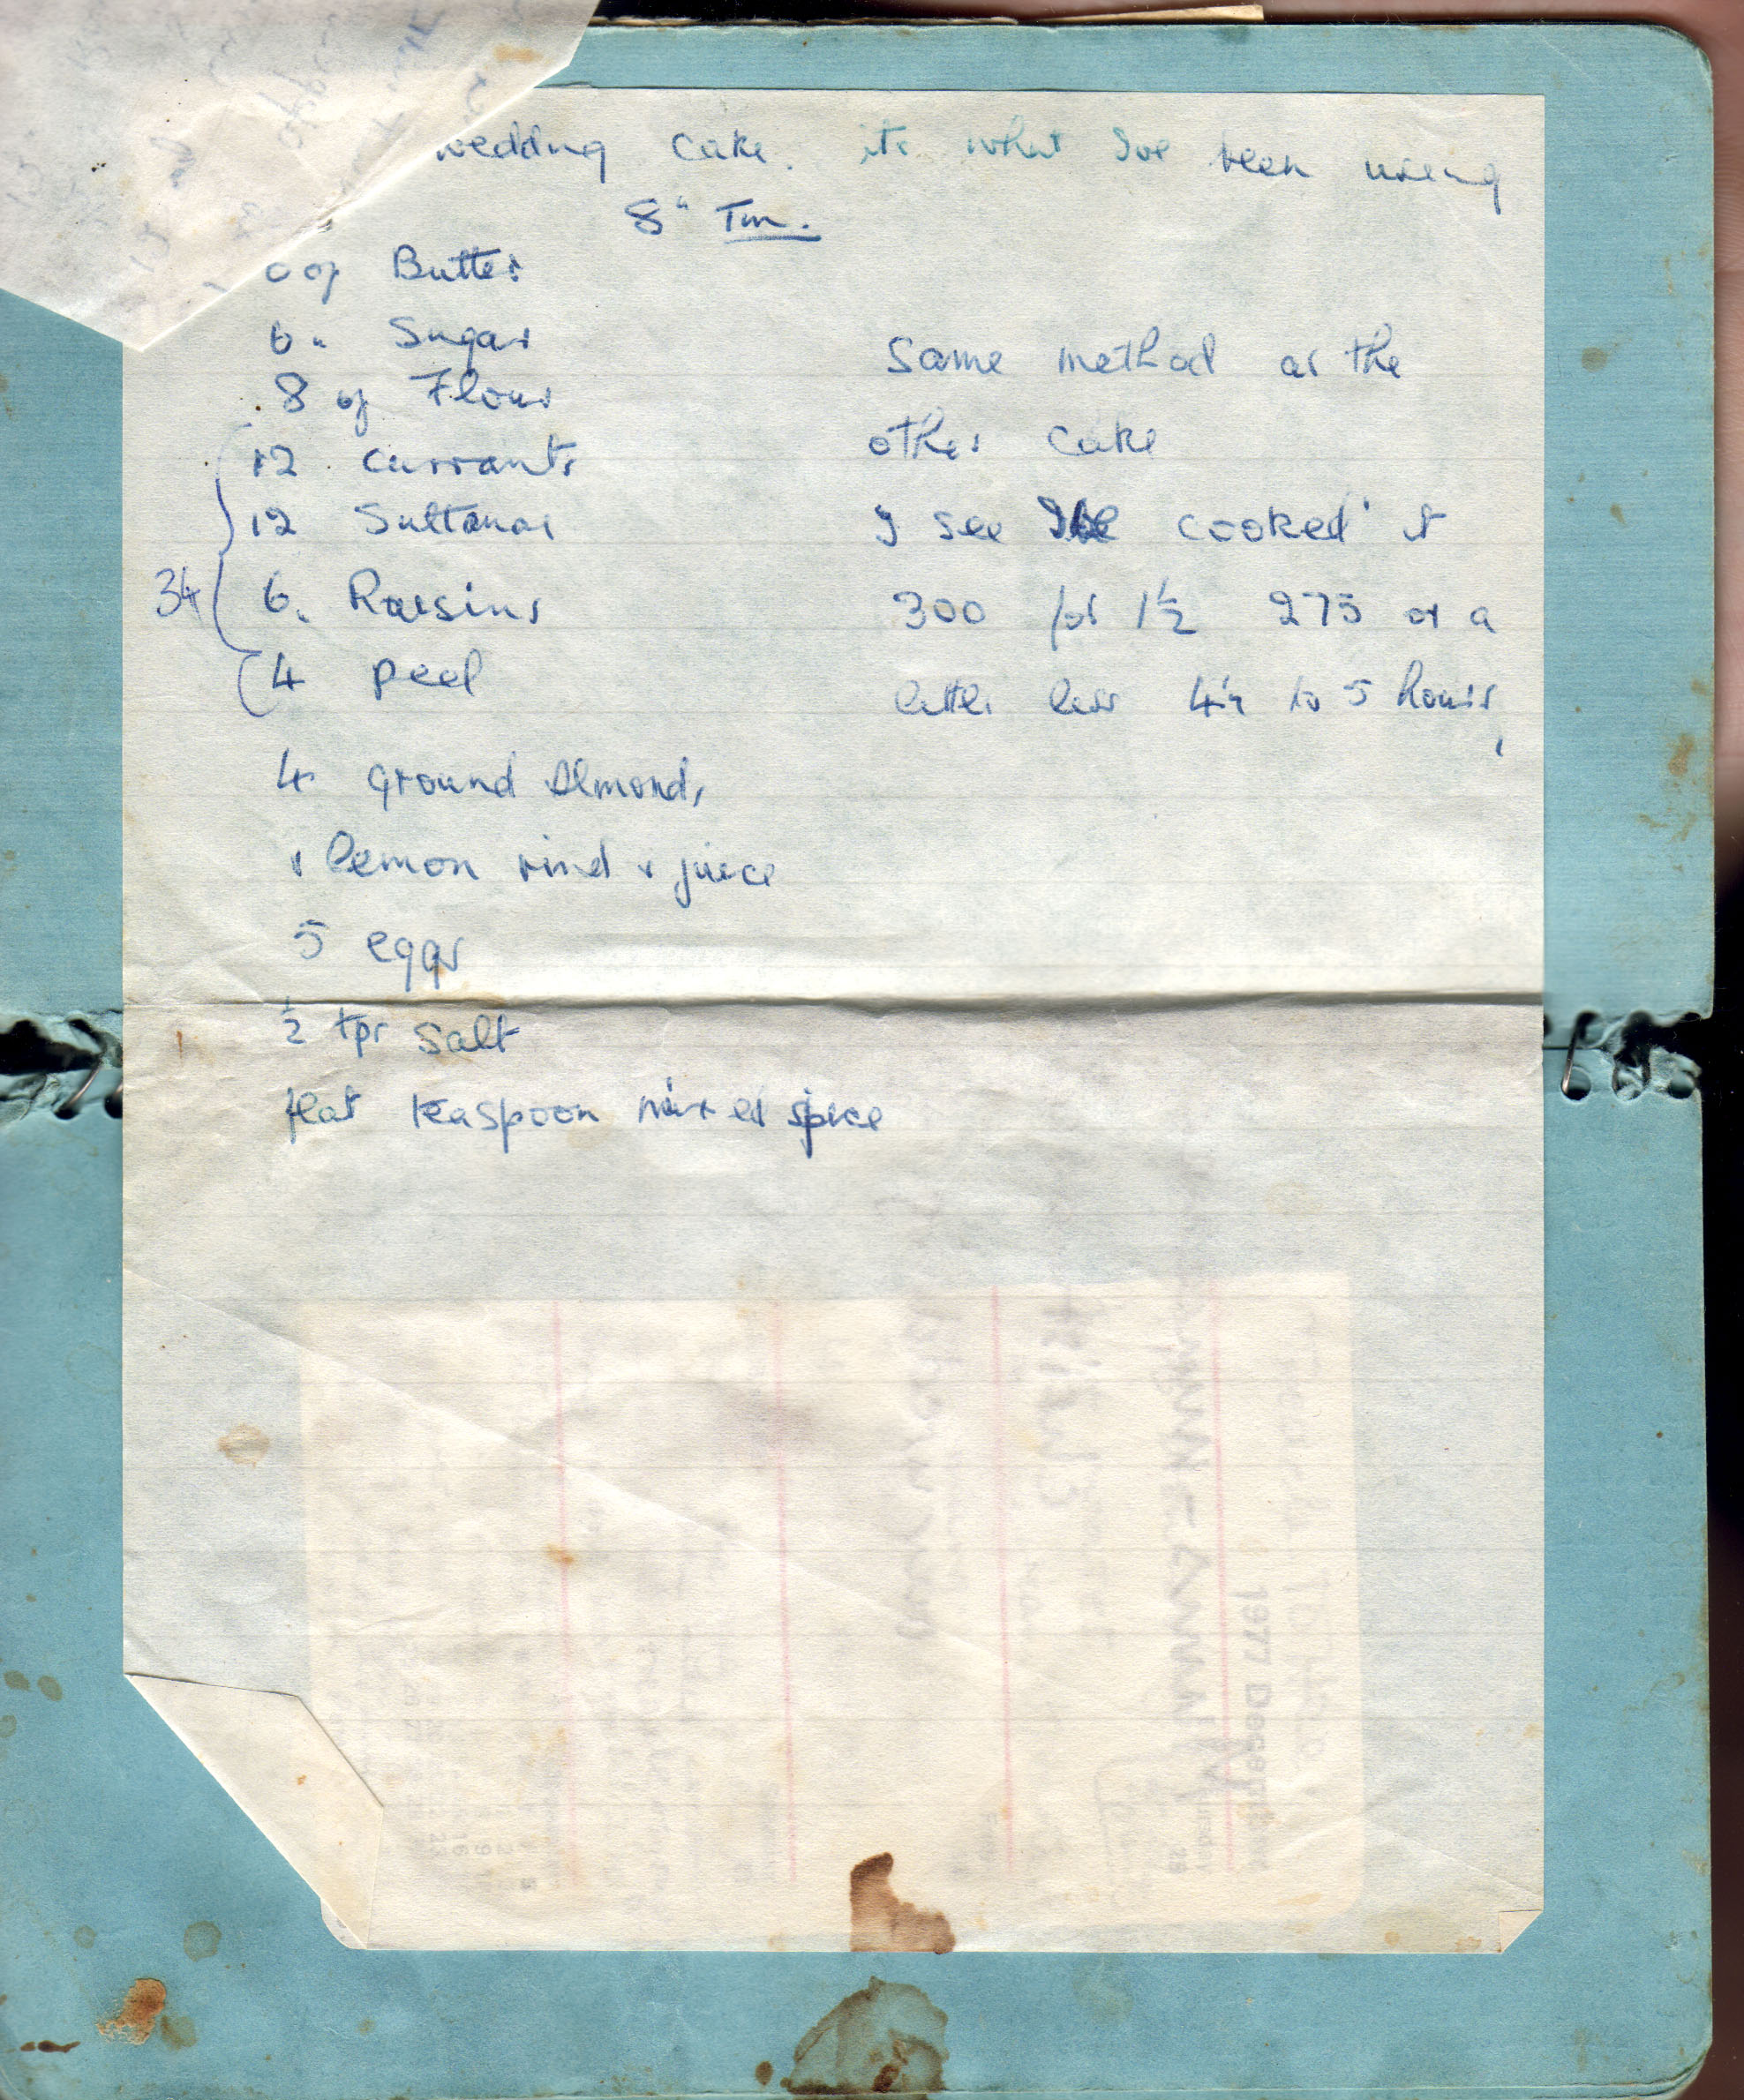 wedding cake. its what Ive been using
8" Tin.
oz Butter
6 " Sugar
8 oz Flour
12 currants
12 Sultanas
34
6. Raisins
4 peel
4 ground Almonds
1 lemon rind & juice
5 eggs
½ tps salt
flat teaspoon mixed spice
Same method as the
other cake
I see Ive cooked it
300 for 1½ 275 or a
little less 4½ to 5 hours
1977 December